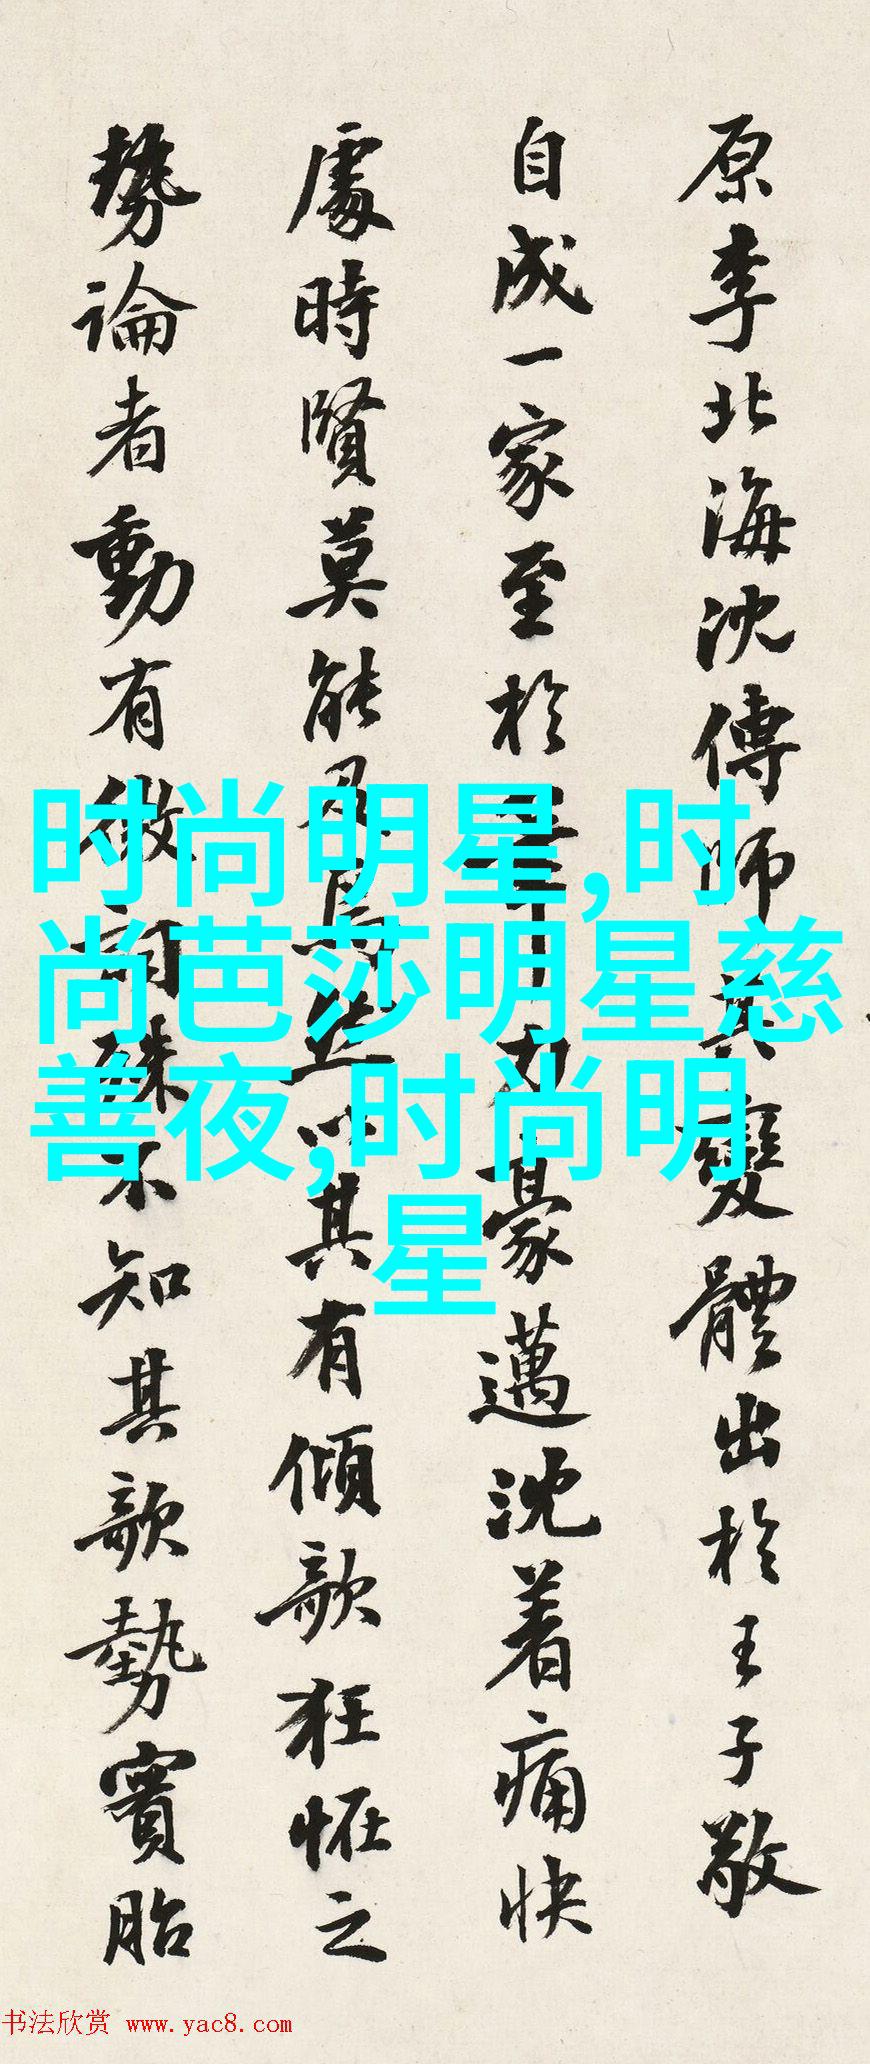 原李北海沈傳師其變體出於王子敬
自成一家至於筆力豪邁沈着痛快
處時賢莫能及焉然以其有傾欹狂怪之
勢論者動有微詞殊不知其欹勢實胎
时尚明星,时
尚芭莎明星慈
善夜,时尚明
星
书法欣赏 www.yac8.com